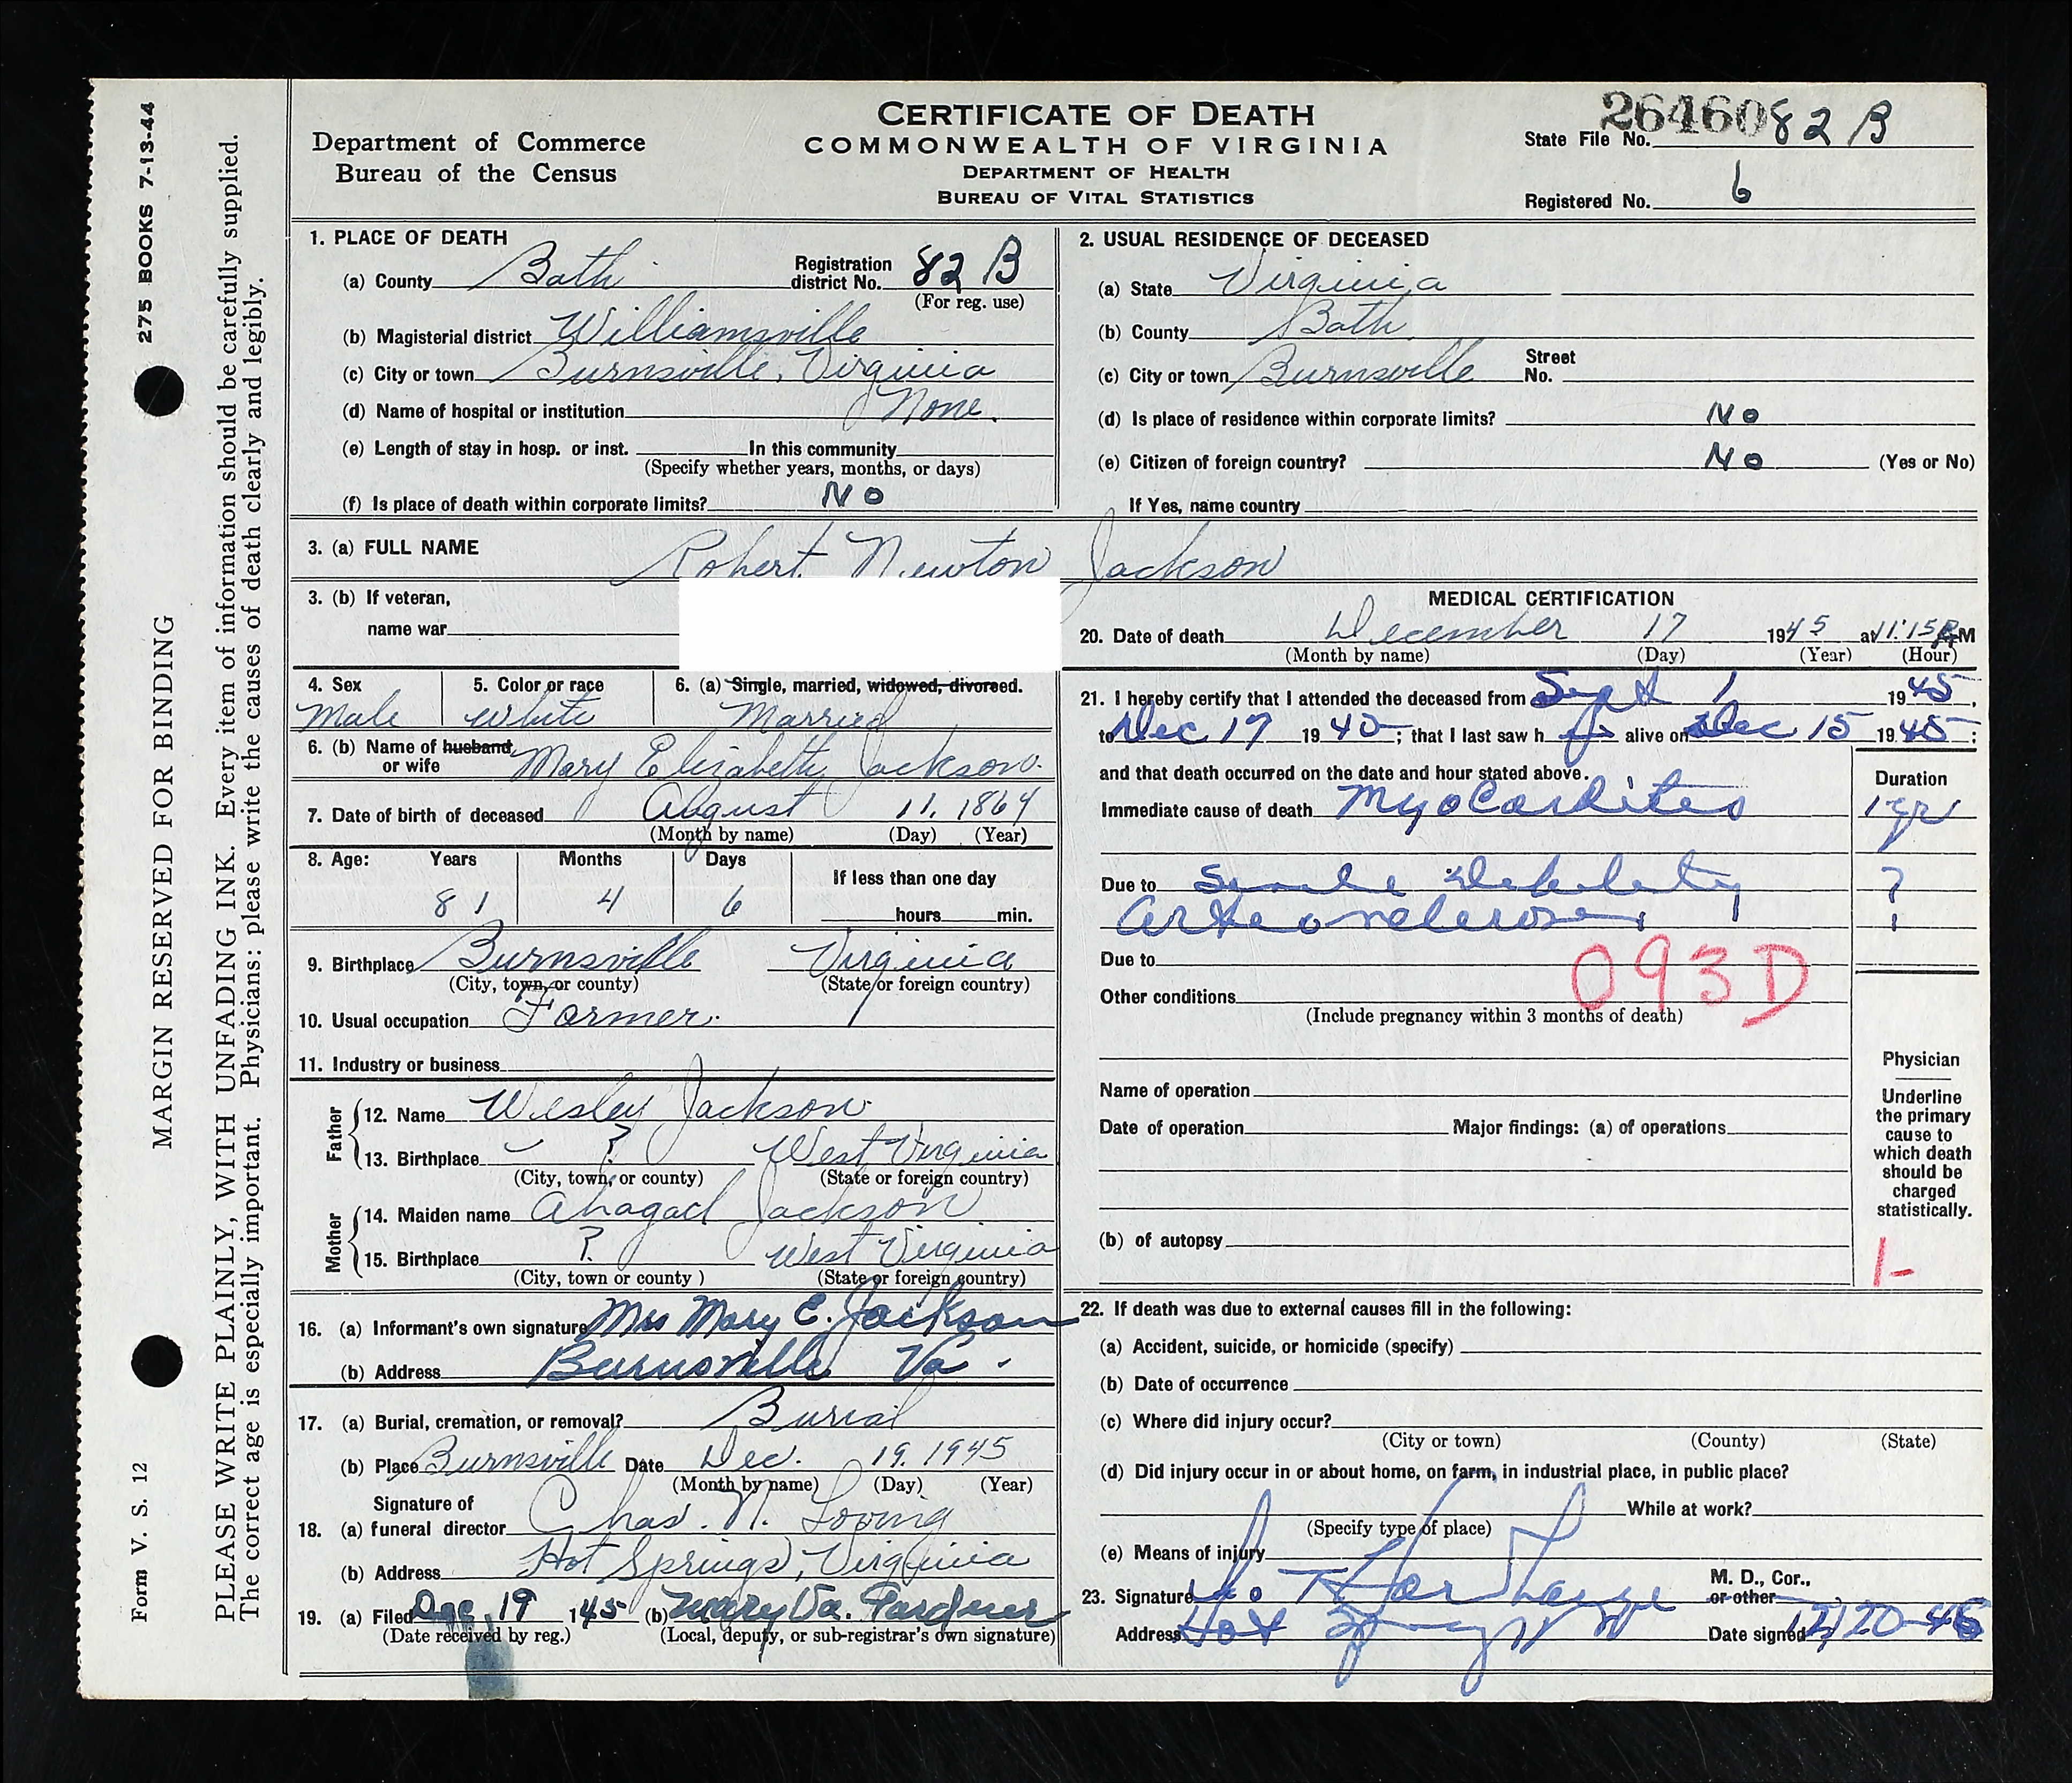 275 BOOKS 7-13-44
MARGIN RESERVED FOR BINDING
Form V. S. 12
PLEASE WRITE PLAINLY, WITH UNFADING INK. Every item of information should be carefully supplied.
The correct age is especially important. Physicians: please write the causes of death clearly and legibly.
Department of Commerce
Bureau of the Census
CERTIFICATE OF DEATH
COMMONWEALTH OF VIRGINIA
DEPARTMENT OF HEALTH
BUREAU OF VITAL STATISTICS
State File No. 26460 82 B
Registered No. 6
1. PLACE OF DEATH
(a) County Bath Registration district No. 82 B
(For reg. use)
(b) Magisterial district Williamsville
(c) City or town Burnsville, Virginia
(d) Name of hospital or institution None.
(e) Length of stay in hosp. or inst. In this community
(Specify whether years, months, or days)
(f) Is place of death within corporate limits? No
2. USUAL RESIDENCE OF DECEASED
(a) State Virginia
(b) County Bath
(c) City or town Burnsville Street No.
(d) Is place of residence within corporate limits? No
(e) Citizen of foreign country? No (Yes or No)
If Yes, name country
3. (a) FULL NAME Robert Newton Jackson
3. (b) If veteran,
name war
4. Sex 5. Color or race 6. (a) Single, married, widowed, divorced.
Male White Married
6. (b) Name of husband or wife Mary Elizabeth Jackson.
7. Date of birth of deceased August 11, 1864
(Month by name) (Day) (Year)
8. Age: Years Months Days If less than one day
81 4 6 hours min.
9. Birthplace Burnsville Virginia
(City, town, or county) (State or foreign country)
10. Usual occupation Farmer.
11. Industry or business
Father
12. Name Wesley Jackson
13. Birthplace ? West Virginia
(City, town, or county) (State or foreign country)
Mother
14. Maiden name Jackson
15. Birthplace ? West Virginia
(City, town or county ) (State or foreign country)
16. (a) Informant's own signature Mrs Mary E. Jackson
(b) Address Burnsville Va.
17. (a) Burial, cremation, or removal? Burial
(b) Place Burnsville Date Dec. 19. 1945
(Month by name) (Day) (Year)
Signature of
18. (a) funeral director Chas. N. Loving
(b) Address Hot Springs, Virginia
19. (a) Filed Dec 19 1945 (b) Mary Va. Gardner
(Date received by reg.) (Local, deputy, or sub-registrar's own signature)
MEDICAL CERTIFICATION
20. Date of death December 17 1945 at 11:15 PM
(Month by name) (Day) (Year) (Hour)
21. I hereby certify that I attended the deceased from Sept 1 1945,
to Dec 17 1945; that I last saw h alive on Dec 15 1945;
and that death occurred on the date and hour stated above.
Duration
Immediate cause of death Myocarditis 1 yr
Due to Senile debility ?
Due to
093D
Other conditions
(Include pregnancy within 3 months of death)
Name of operation
Date of operation Major findings: (a) of operations
(b) of autopsy
Physician
Underline
the primary
cause to
which death
should be
charged
statistically.
1-
22. If death was due to external causes fill in the following:
(a) Accident, suicide, or homicide (specify)
(b) Date of occurrence
(c) Where did injury occur?
(City or town) (County) (State)
(d) Did injury occur in or about home, on farm, in industrial place, in public place?
While at work?
(Specify type of place)
(e) Means of injury
23. Signature M. D., Cor., or other
Address Hot Date signed 12/20-45